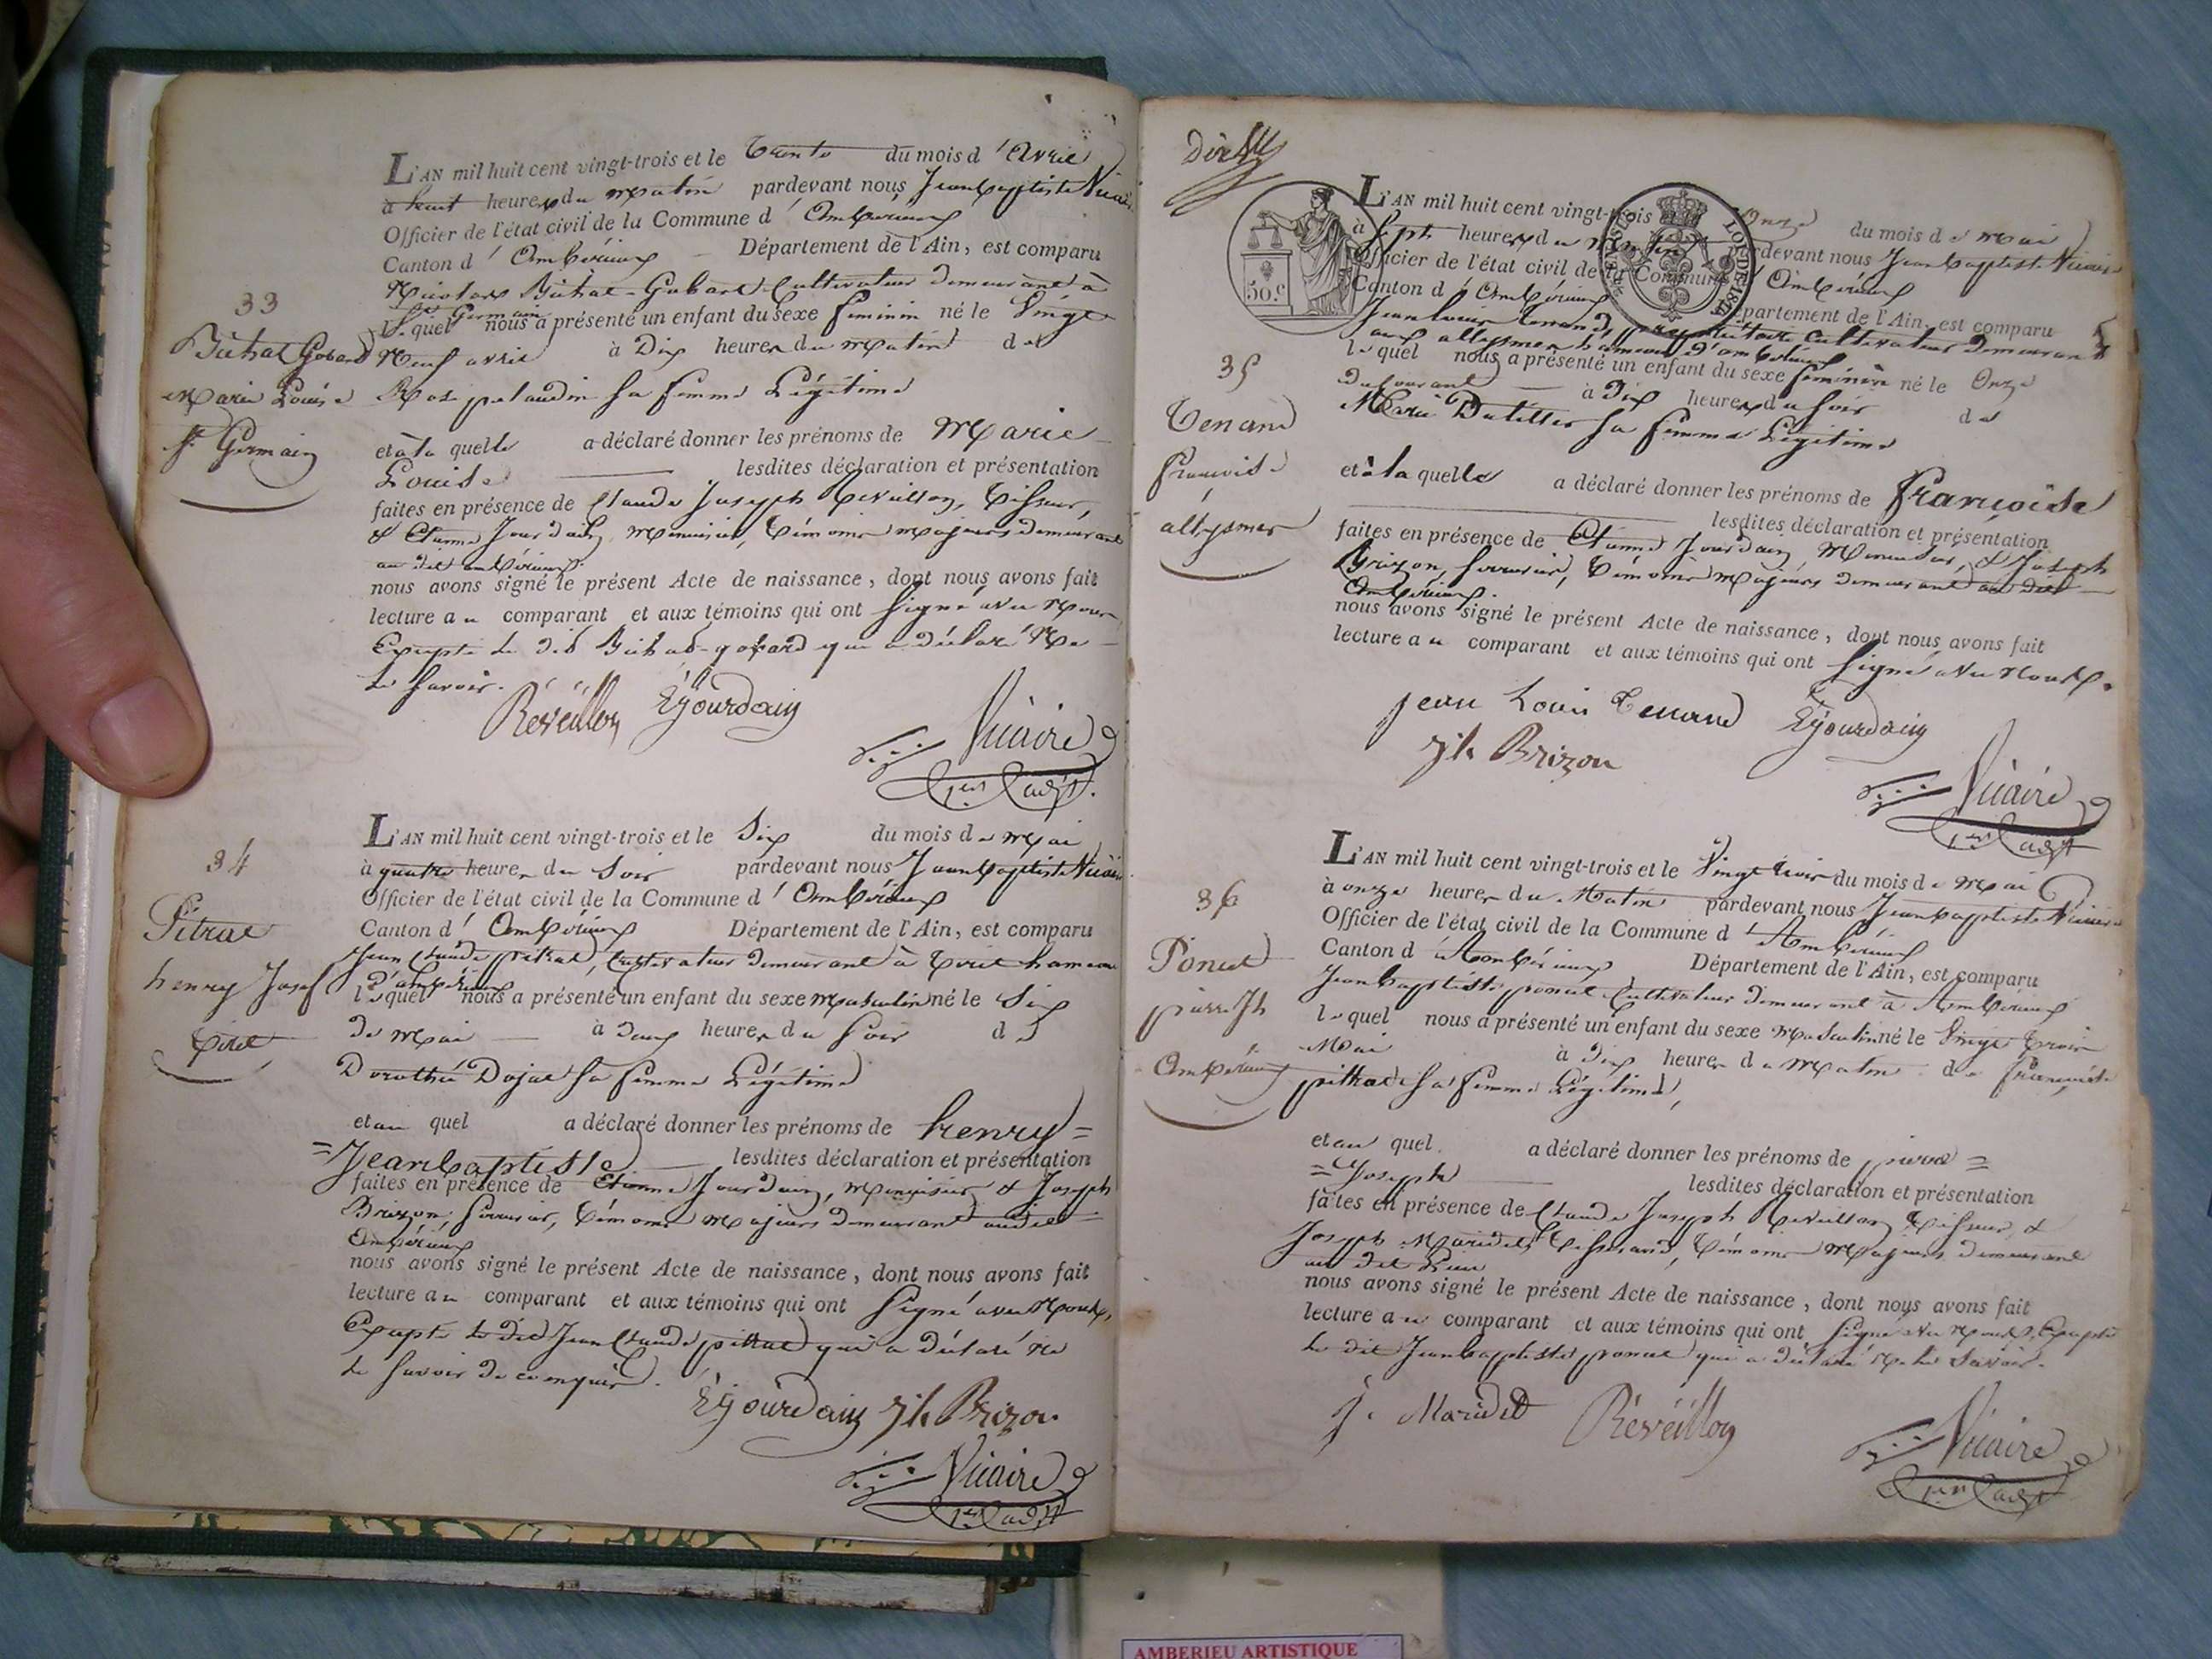 33
Bichat Gobard
Marie Louise
St Germain
L'AN mil huit cent vingt-trois et le trente du mois d'avril
à huit heures du matin pardevant nous Jean baptiste Vicaire
Officier de l'état civil de la Commune d'Ambérieux
Canton d'Ambérieux Département de l'Ain, est comparu
Bichat-Gobard Cultivateur demeurant à
St Germain
lequel nous a présenté un enfant du sexe feminin né le vingt
neuf avril à dix heures du matin de
Rose pelaudin sa femme Légitime
et à la quelle a déclaré donner les prénoms de Marie
Louise lesdites déclaration et présentation
faites en présence de Claude Joseph Reveillon, tisseur,
& Etienne Jourdain, menuisier, témoins majeurs demeurant
au dit ambérieux.
nous avons signé le présent Acte de naissance, dont nous avons fait
lecture au comparant et aux témoins qui ont signé avec nous
Excepté le dit Bichat-gobard qui a déclaré ne
le savoir.
Réveillon EJourdain
Vicaire
1er adjt.
34
Pitrat
henry Josef
tiret
L'AN mil huit cent vingt-trois et le Six du mois de mai
à quatre heures du soir pardevant nous Jean baptiste Vicaire
Officier de l'état civil de la Commune d'Ambérieux
Canton d'Ambérieux Département de l'Ain, est comparu
Jean Claude pitrat, Cultivateur demeurant à tiret hameau
d'ambérieux
lequel nous a présenté un enfant du sexe masculin né le Six
de mai à deux heures du soir de
Dorothée Dujat sa femme Légitime
et au quel a déclaré donner les prénoms de henry=
=Jean baptiste lesdites déclaration et présentation
faites en présence de Etienne Jourdain, menuisier & Joseph
Brizon serrurier, témoins majeurs demeurant audit
Ambérieux
nous avons signé le présent Acte de naissance, dont nous avons fait
lecture au comparant et aux témoins qui ont signé avec nous,
Excepté le dit Jean Claude pitrat qui a déclaré ne
le savoir de ce enquis.
EJourdain Jh Brizon
Vicaire
1er adjt
35
Tenand
françoise
allysmer
50.c
LOI DE 18
L'AN mil huit cent vingt-trois et le Onze du mois de mai
à sept heures du matin pardevant nous Jean baptiste Vicaire
Officier de l'état civil de la Commune d'Ambérieux
Canton d'Ambérieux Département de l'Ain, est comparu
Jean Louis Tenand, propriétaire Cultivateur demeurant
aux allysmer hameau d'ambérieux
lequel nous a présenté un enfant du sexe feminin né le Onze
du courant à dix heures du soir de
Marie Dutillet sa femme Légitime
et à la quelle a déclaré donner les prénoms de françoise
lesdites déclaration et présentation
faites en présence de Etienne Jourdain Menuisier, & Joseph
Brizon, serrurier, témoins majeurs demeurant au dit
Ambérieux.
nous avons signé le présent Acte de naissance, dont nous avons fait
lecture au comparant et aux témoins qui ont signé avec nous.
Jean Louis Tenand EJourdain
Jh Brizon
Vicaire
1er adjt
36
Poncet
pierre Jh
Ambérieux
L'AN mil huit cent vingt-trois et le vingt trois du mois de mai
à onze heures du matin pardevant nous Jean baptiste Vicaire
Officier de l'état civil de la Commune d'Ambérieux
Canton d'Ambérieux Département de l'Ain, est comparu
Jean baptiste poncet Cultivateur demeurant à Ambérieux
lequel nous a présenté un enfant du sexe masculin né le vingt trois
Mai à dix heures du matin de françoise
pittrat sa femme Légitime,
et au quel a déclaré donner les prénoms de pierre=
=Joseph lesdites déclaration et présentation
faites en présence de Claude Joseph Reveillon tisseur, &
Joseph Maridet, tisserand, témoins majeurs demeurant
au dit Lieu
nous avons signé le présent Acte de naissance, dont nous avons fait
lecture au comparant et aux témoins qui ont signé avec nous, Excepté
le dit Jean baptiste poncet qui a déclaré ne le savoir.
J. Maridet Réveillon
Vicaire
1er adjt
AMBERIEU ARTISTIQUE